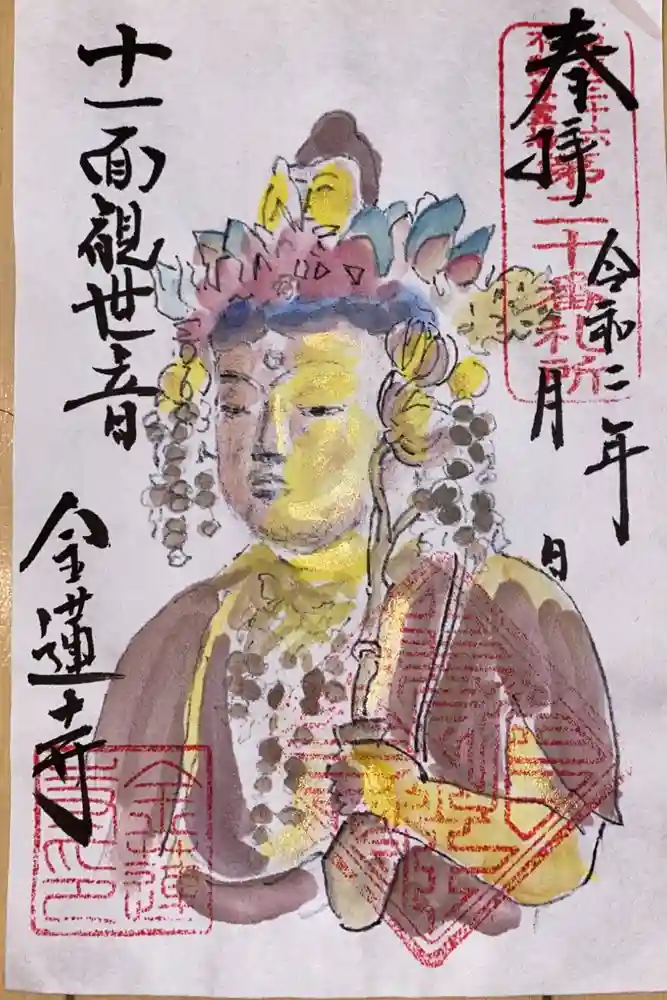 奉拝
令和二年
月
日
第二十番札所
十一面観世音
金蓮寺
金蓮
寺印